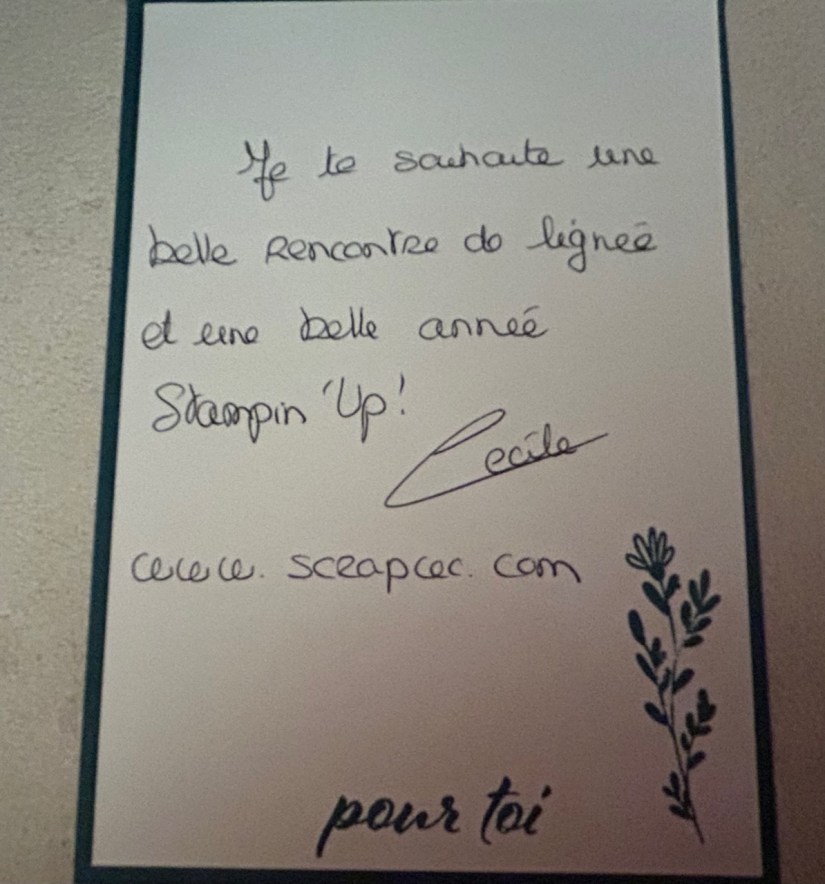 Je te souhaite une
belle rencontre de lignée
et une belle année
Stampin 'Up!
Cecile
www.scrapcec.com
pour toi